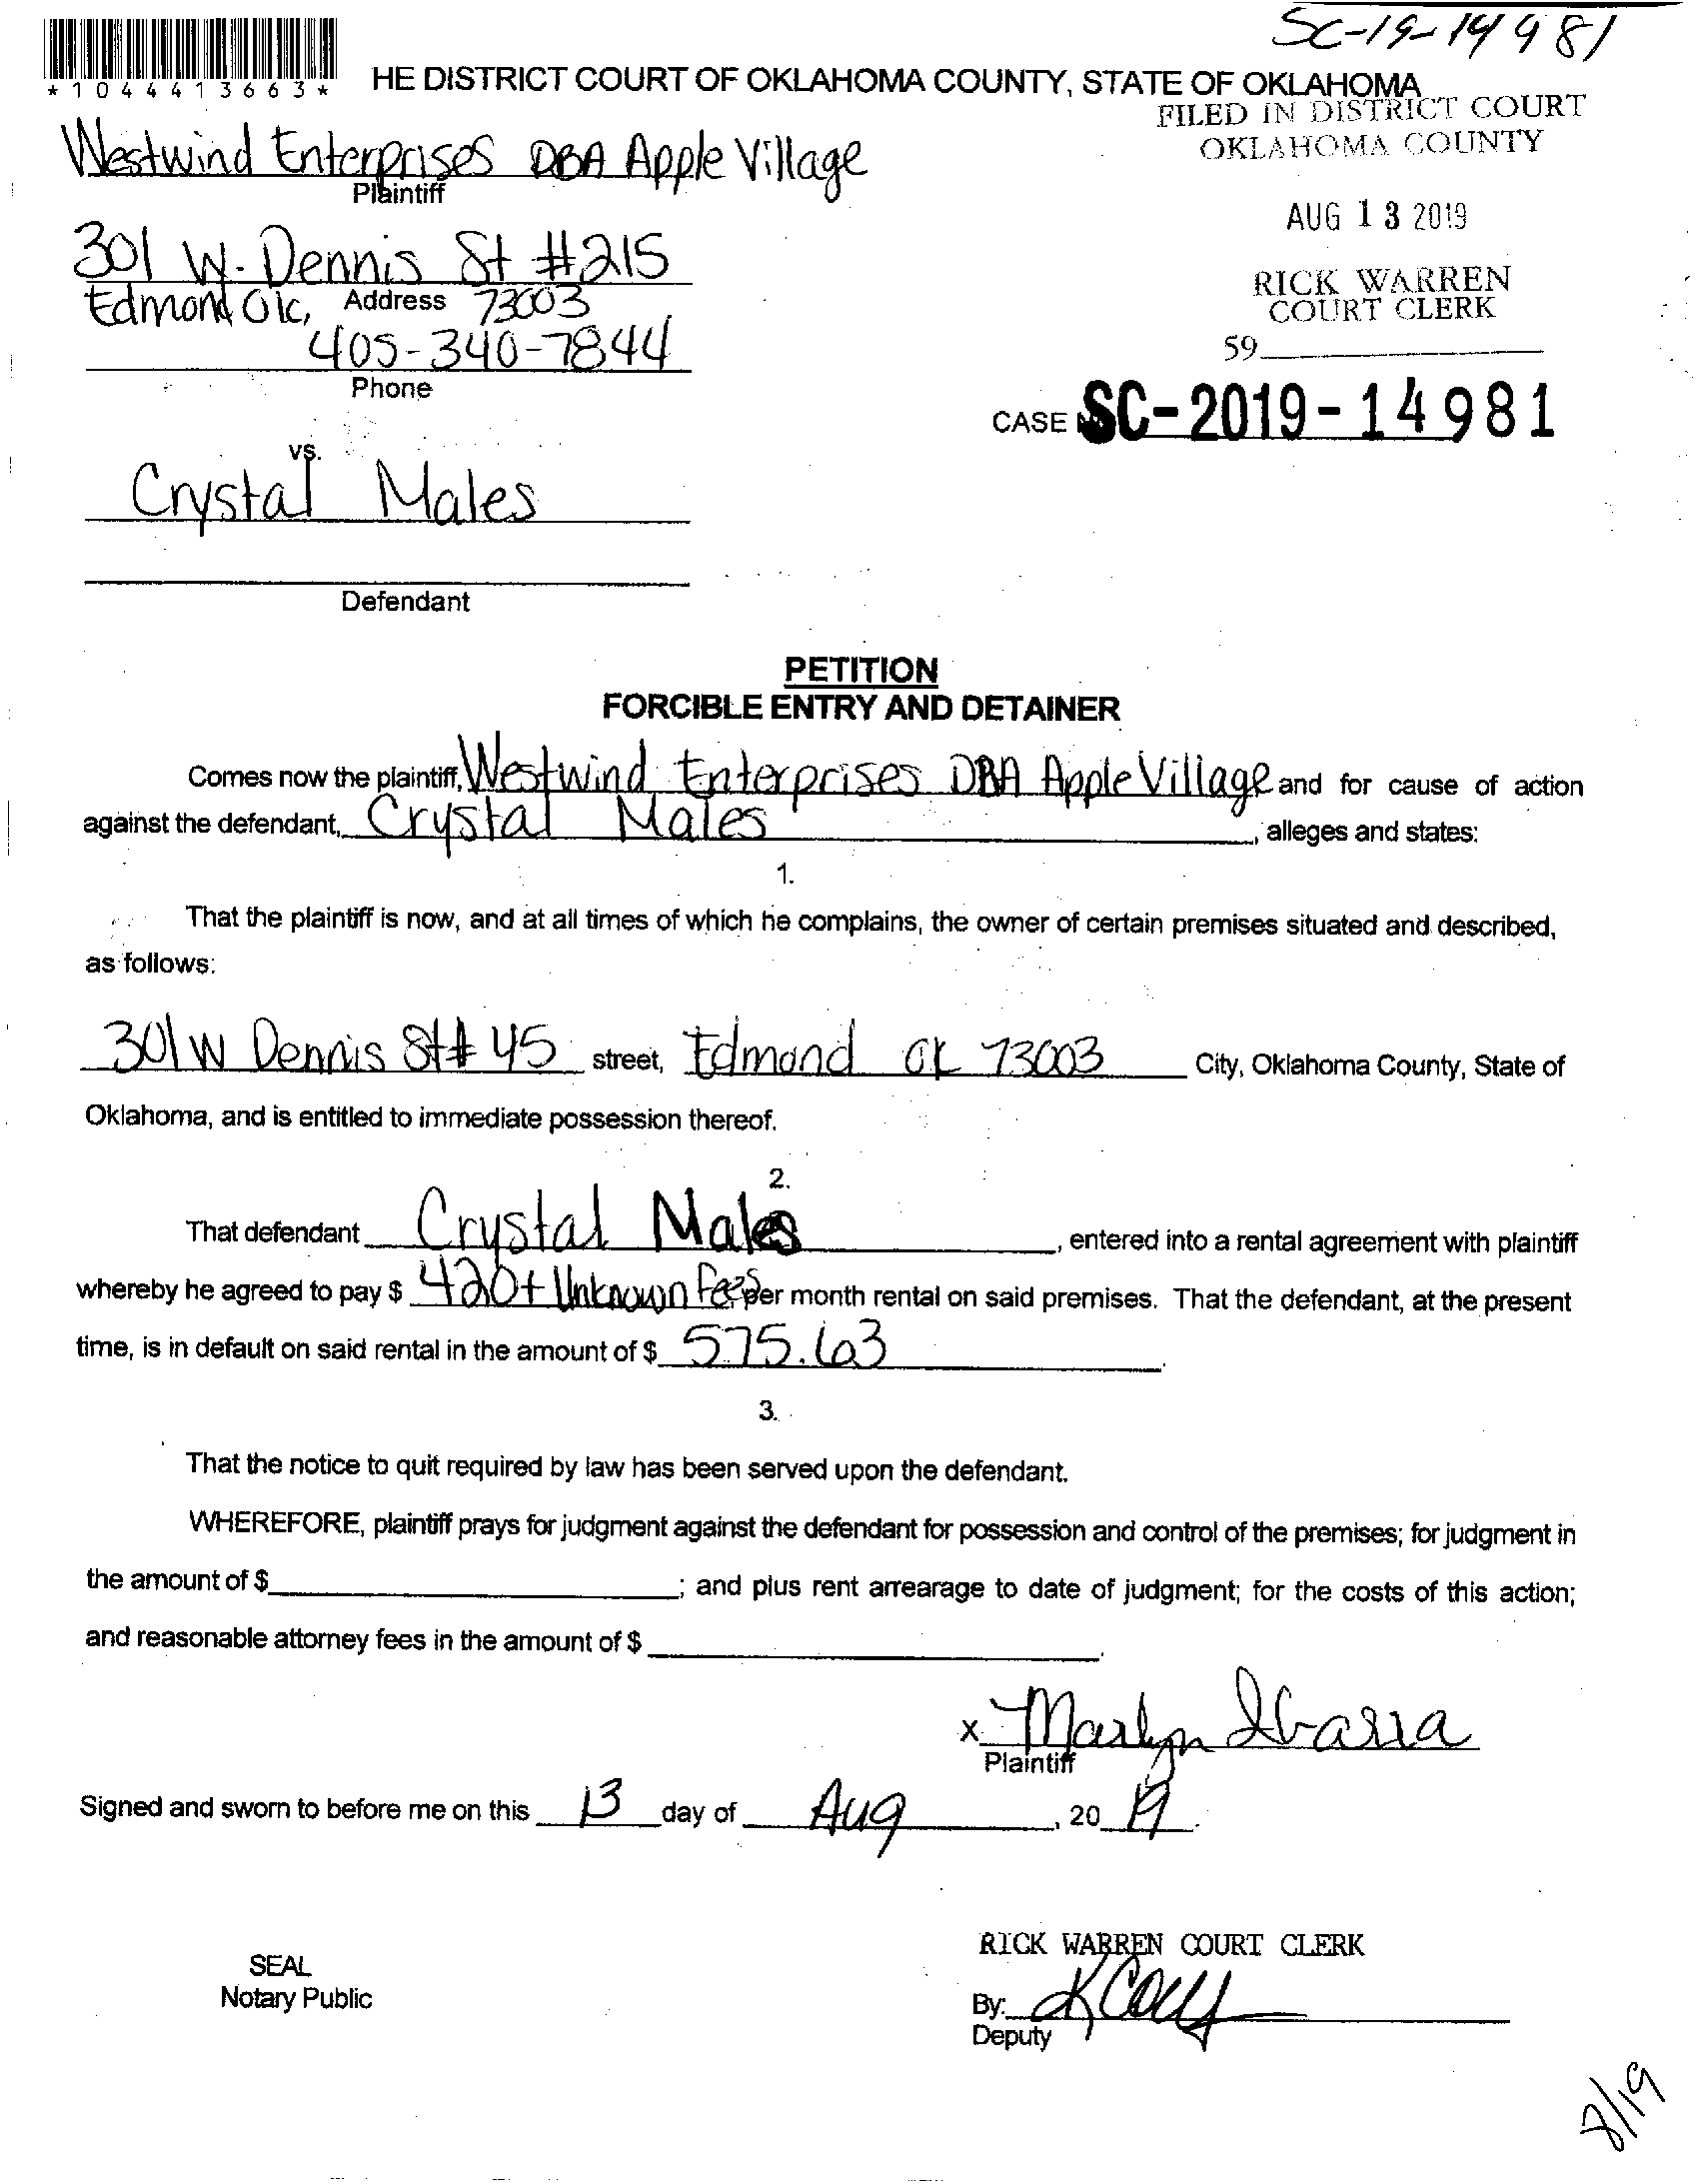 SC-19-14981
*1044413663*
HE DISTRICT COURT OF OKLAHOMA COUNTY, STATE OF OKLAHOMA
FILED IN DISTRICT COURT
OKLAHOMA COUNTY
Westwind Enterprises DBA Apple Village
Plaintiff
AUG 13 2019
301 W. Dennis St #215
RICK WARREN
COURT CLERK
Edmond Ok, Address 73003
59
405-340-7844
Phone
CASE SC-2019-14981
vs.
Crystal Males
Defendant
PETITION
FORCIBLE ENTRY AND DETAINER
Comes now the plaintiff, Westwind Enterprises DBA Apple Village and for cause of action
against the defendant, Crystal Males, alleges and states:
1.
That the plaintiff is now, and at all times of which he complains, the owner of certain premises situated and described,
as follows:
301 W Dennis St # 45 street, Edmond OK 73003 City, Oklahoma County, State of
Oklahoma, and is entitled to immediate possession thereof.
2.
That defendant Crystal Males, entered into a rental agreement with plaintiff
whereby he agreed to pay $ 420+ Unknown Fees per month rental on said premises. That the defendant, at the present
time, is in default on said rental in the amount of $ 575.63.
3.
That the notice to quit required by law has been served upon the defendant.
WHEREFORE, plaintiff prays for judgment against the defendant for possession and control of the premises; for judgment in
the amount of $ ; and plus rent arrearage to date of judgment; for the costs of this action;
and reasonable attorney fees in the amount of $ .
x Marlyn Ibarra
Plaintiff
Signed and sworn to before me on this 13 day of Aug, 20 19.
RICK WARREN COURT CLERK
SEAL
Notary Public
By:
Deputy
8/19